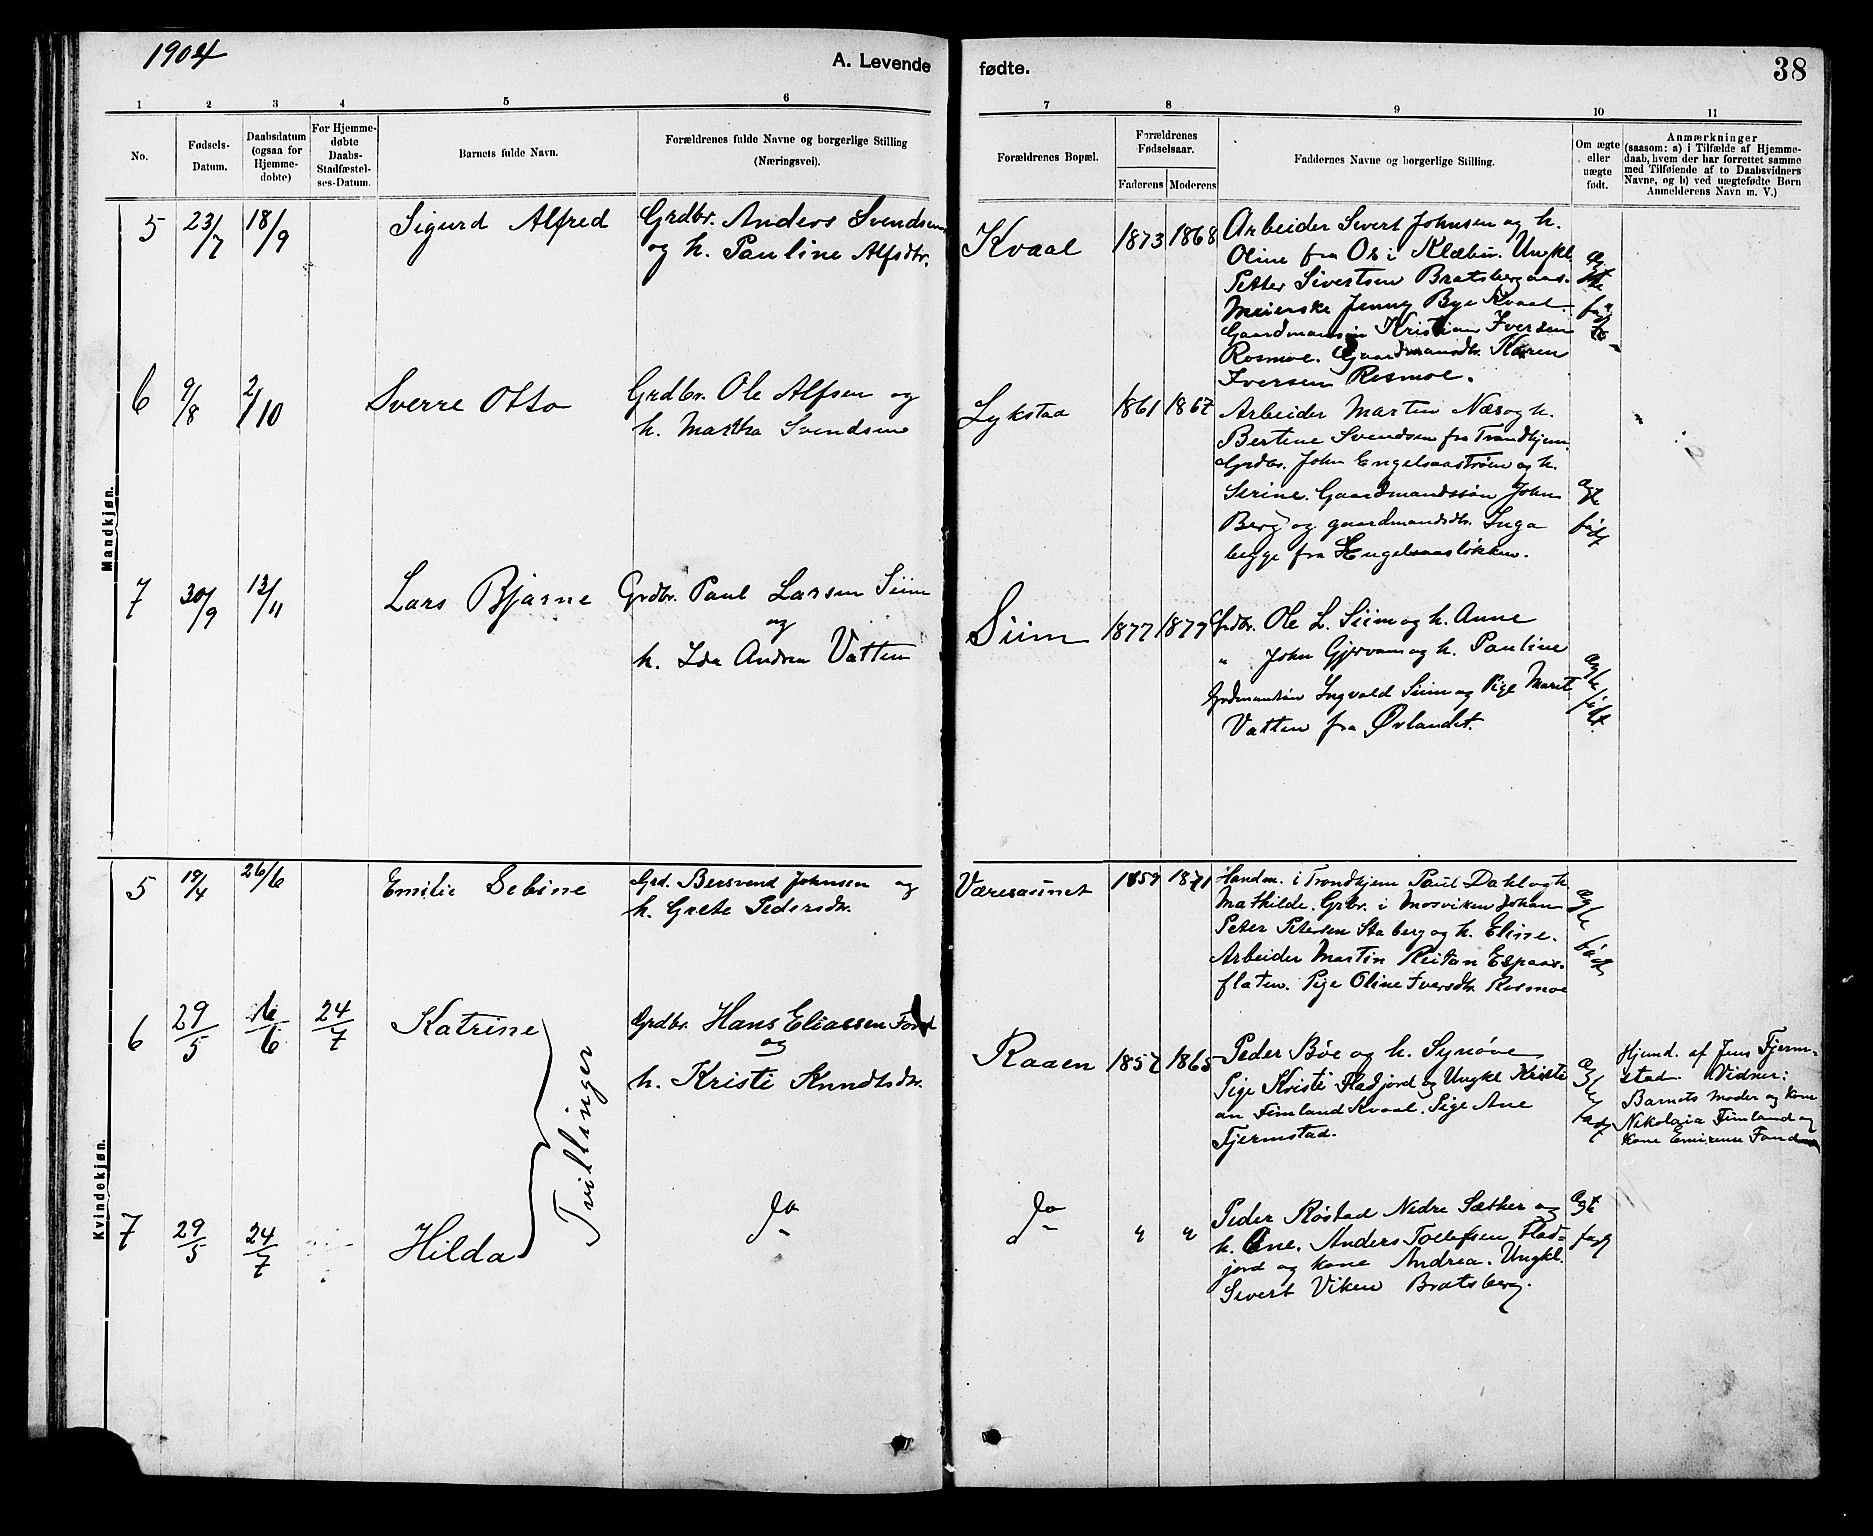 1904
A. Levende
fødte.
38
1 2 3 4 5 6 7 8 9 10 11
No.
Fødsels-
Datum.
Daabsdatum
(ogsaa for
Hjemme-
døbte)
For Hjemme-
døbte
Daabs-
Stadfæstel-
ses-Datum.
Barnets fulde Navn.
Forældrenes fulde Navne og borgerlige Stilling
(Næringsvei).
Forældrenes Bopæl.
Forældrenes
Fødselsaar.
Faderens Moderens
Faddernes Navne og borgerlige Stilling.
Om ægte
eller
uægte
født.
Anmærkninger
(saasom: a) i Tilfælde af Hjemme-
daab, hvem der har forrettet samme
med Tilføiende af to Daabsvidners
Navne, og b) ved uægtefødte Børn
Anmelderens Navn m. V.)
Mandkjøn.
5 23/7 18/9 Sigurd Alfred
Grdbr. Anders Svendsen
og h. Pauline Alfsdtr.
Kvaal 1873 1868
Arbeider Sivert Johnsen og h.
Oline fra Os i Klæbu. Ungkl.
Petter Sivertsen Bratsbergaas.
Meierske Jenny Bye Kvaal.
Gaardmansøn Kristian Iversen
Rosmoe. Gaardmansdtr. Karen
Iversen Rosmoe.
ægte
født
6 9/8 2/10 Sverre Otto
Grdbr. Ole Alfsen og
h. Martha Svendsen
Lykstad 1861 1867
Arbeider Martin Næs og h.
Bertine Svendsen fra Trondhjem.
Grdbr. John Engelsaastrøen og h.
Serine. Gaardmandssøn John
Berg og gaardmandsdtr. Inga
begge fra Engelsaasløkken.
ægte
født
7 30/9 13/11 Lars Bjarne
Grdbr. Paul Larsen Siim
og
h. Ida Andrea Vatten
Siim 1877 1879
Grdbr. Ole L. Siim og h. Anne
" John Gjervam og h. Pauline
Grdmansøn Ingvald Siim og Pige Marit
Vatten fra Ørlandet.
ægte
født.
Kvindekjøn.
5 18/4 26/6 Emilie Sebine
Grd. Bersvend Johnsen og
h. Grete Pedersdtr.
Væresaunet 1859 1871
Handm. i Trondhjem Paul Dahl og h
Mathilde. Grbr. i Mosviken Johan
Peter Petersen Staberg og h. Eline.
Arbeider Martin Reitan Espaas-
flaten. Pige Oline Iversdtr. Rosmoe
ægte
født
6 29/5 1/6 24/7 Katrine
Tvillinger
Grdbr. Hans Eliassen
og
h. Kristi Knudtsdtr.
Raaen 1857 1865
Peder Bøe og h. Synøve
Pige Kristi Fladjord og Ungkl Kristi
an Fimland Kvaal. Pige Ane
Fjermstad.
ægte
født
Hjemd. af Jens Fjerm-
stad. Vidner:
Barnets Moder og kone
Nikolaia Fimland og
Kone
7 29/5 24/7 Hilda
Do
Do
" "
Peder Røstad Nedre Sæther og
h. Ane. Anders Tollefsen Flad-
jord og kone Andrea. Ungkl.
Sivert Viken Bratsberg.
ægte
født